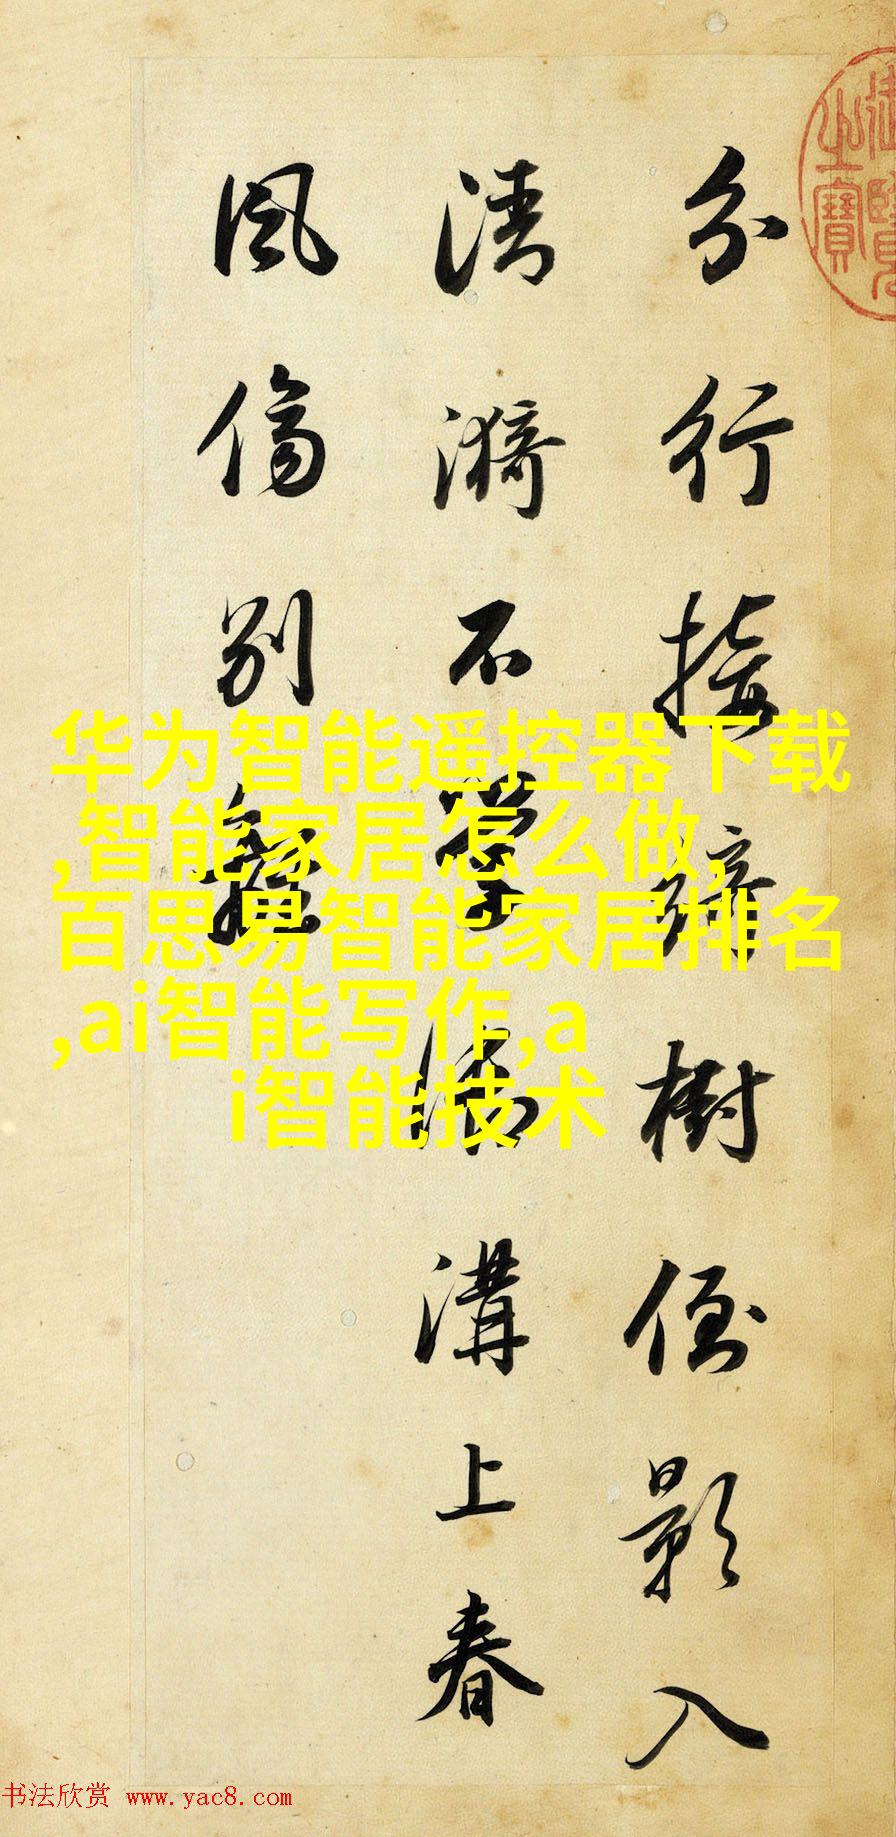 分行接綺樹倒影入
清漪不學御溝上春
風傷別離
御覽之寶
华为智能遥控器下载
,智能家居怎么做,
百思易智能家居排名
,ai智能写作,a
i智能技术
书法欣赏 www.yac8.com